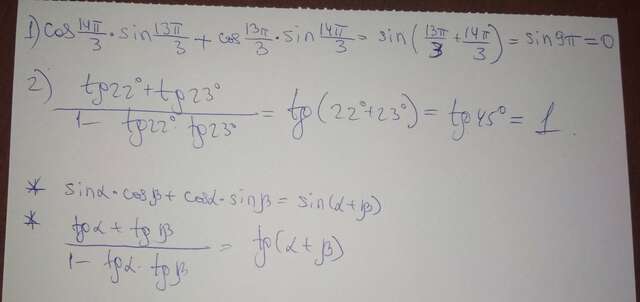 1) cos 14π/3 · sin 13π/3 + cos 13π/3 · sin 14π/3 = sin(13π/3 + 14π/3) = sin 9π = 0
2) (tg22° + tg23°)/(1 - tg22° · tg23°) = tg(22° + 23°) = tg45° = 1.
* sinα · cosβ + cosα · sinβ = sin(α + β)
* (tgα + tgβ)/(1 - tgα · tgβ) = tg(α + β)